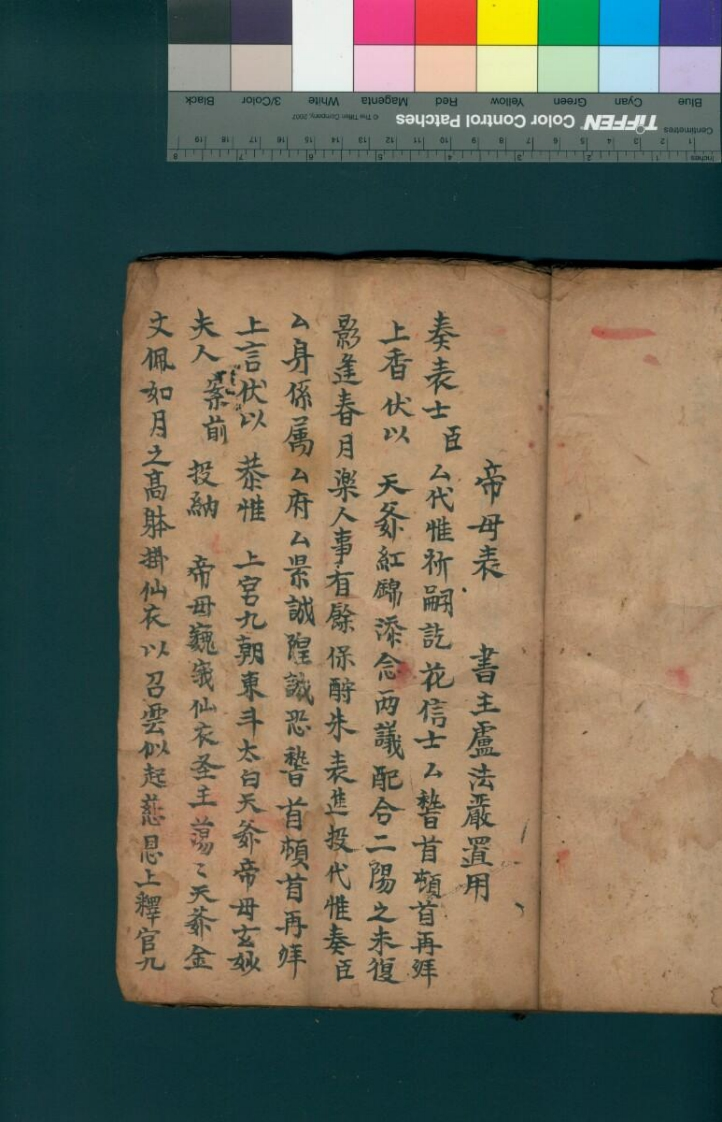 帝母表 書主盧法嚴置用
奏表士臣厶代惟祈嗣訖花信士厶稽首頓首再拜
上香伏以 天爺紅錦添念両議配合二陽之未復
影逢春月楽人事有餘保酧朱表進投代惟奏臣
厶身係属厶府厶景誠隍誠恐稽首頓首再拜
上言伏以 恭惟 上宮九朝東斗太白天爺帝母玄妙
夫人 案前 投納 帝母巍峩仙衣圣王蕩〻天爺金
文佩如月之高躰掛仙衣以召雲似起慈恩上釋官九
Blue Cyan Green Yellow Red Magenta White 3/Color Black
TIFFEN Color Control Patches © The Tiffen Company, 2007
Centimetres 1 2 3 4 5 6 7 8 9 10 11 12 13 14 15 16 17 18 19
Inches 1 2 3 4 5 6 7 8